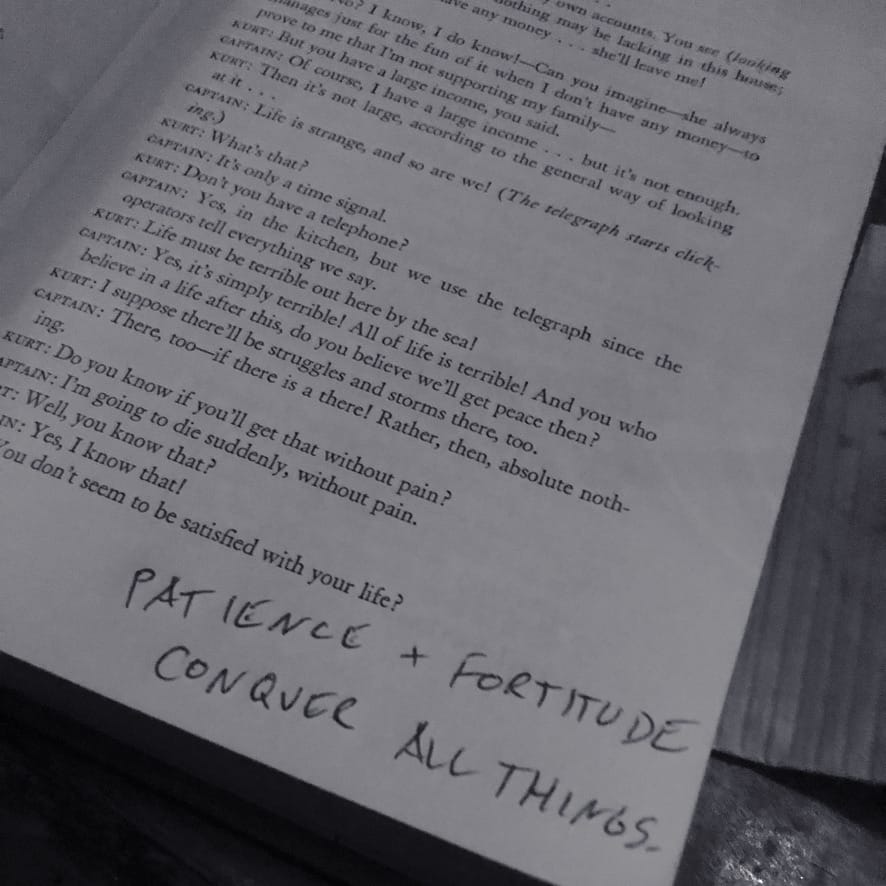 own accounts. You see (looking
othing may be lacking in this house;
ave any money . . . she'll leave me!
No? I know, I do know!—Can you imagine—she always
manages just for the fun of it when I don't have any money—to
prove to me that I'm not supporting my family—
KURT: But you have a large income, you said.
CAPTAIN: Of course, I have a large income . . . but it's not enough.
KURT: Then it's not large, according to the general way of looking
at it . . .
CAPTAIN: Life is strange, and so are we! (The telegraph starts click-
ing.)
KURT: What's that?
CAPTAIN: It's only a time signal.
KURT: Don't you have a telephone?
CAPTAIN: Yes, in the kitchen, but we use the telegraph since the
operators tell everything we say.
KURT: Life must be terrible out here by the sea!
CAPTAIN: Yes, it's simply terrible! All of life is terrible! And you who
believe in a life after this, do you believe we'll get peace then?
KURT: I suppose there'll be struggles and storms there, too.
CAPTAIN: There, too—if there is a there! Rather, then, absolute noth-
ing.
KURT: Do you know if you'll get that without pain?
APTAIN: I'm going to die suddenly, without pain.
RT: Well, you know that?
IN: Yes, I know that!
You don't seem to be satisfied with your life?
PATIENCE + FORTITUDE
CONQUER ALL THINGS.